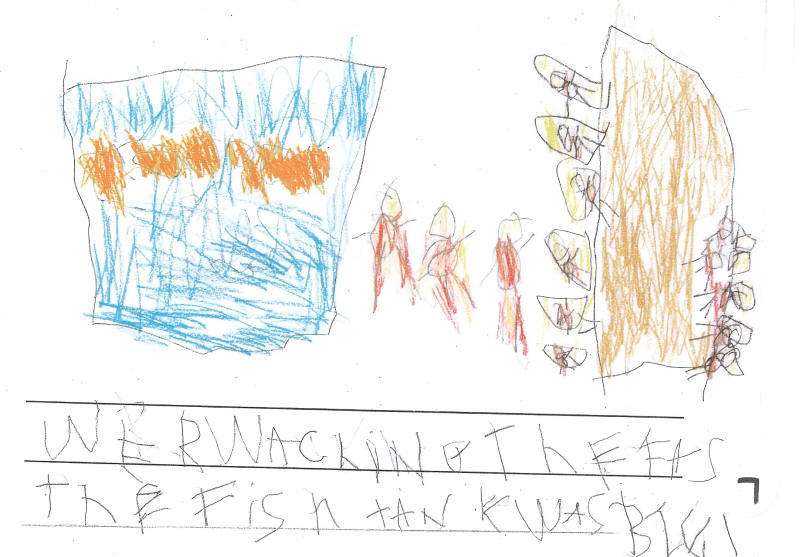 WE R WAChiNG ThE
ThE FiSh tAN K WAS BIG